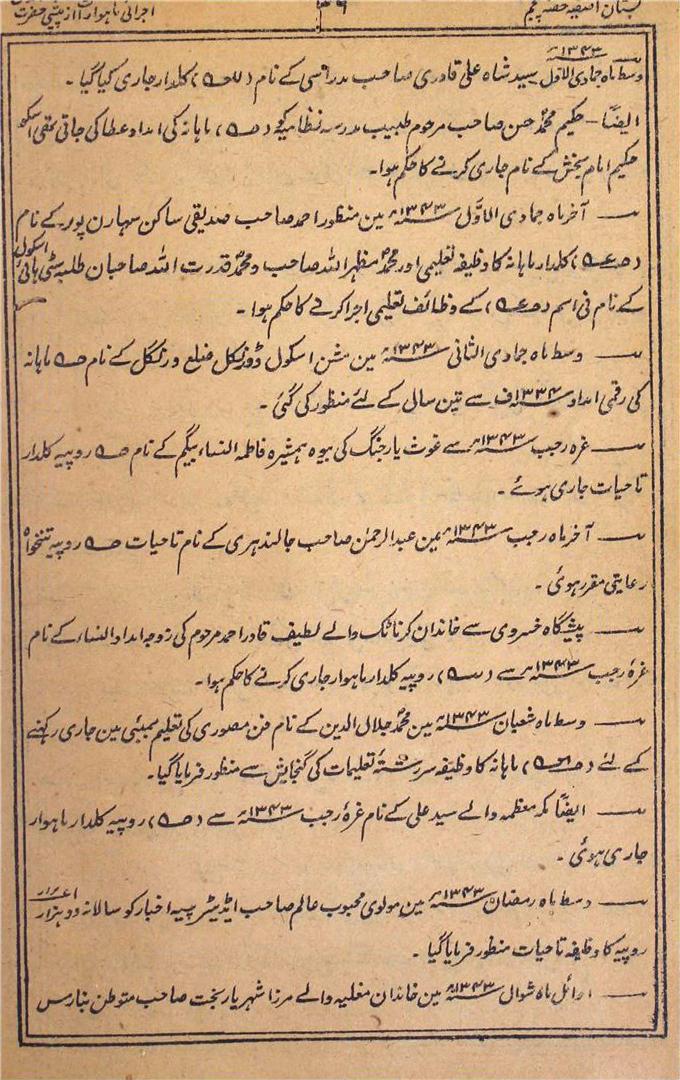 بستان آصفیہ حصہ پنجم ۳۹ اجرائی ماہوار از پیشی حضرت
وسط ماہ جمادی الاول ۱۳۴۳ھ سید شاہ علی قادری صاحب مدراسی کے نام ( ) کلدار جاری کیا گیا ۔
ایضاً ۔ حکیم محمد حسن صاحب مرحوم طبیب مدرسہ نظامیہ کو ( ) ماہانہ کی امداد عطا کی جاتی تھی اسکو
حکیم امام بخش کے نام جاری کرنے کا حکم ہوا۔
— آخر ماہ جمادی الاوّل ۱۳۴۳ھ مین منظور احمد صاحب صدیقی ساکن سہارن پور کے نام
( ) کلدار ماہانہ کا وظیفہ تعلیمی اور محمد مظہر اللہ صاحب و محمد قدرت اللہ صاحبان طلبہ سٹی ہائی اسکول
کے نام فی اسم ( ) کے وظائف تعلیمی اجرا کرنے کا حکم ہوا ۔
— وسط ماہ جمادی الثانی ۱۳۴۳ھ مین مشن اسکول ڈورنکل ضلع ورنگل کے نام ماہانہ
کی رقمی امداد ۱۳۳۴ف سے تین سال کے لئے منظور کی گئی ۔
— غرہ رجب ۱۳۴۳ھ سے غوث یار جنگ کی بیوہ ہمشیرہ فاطمہ النساء بیگم کے نام روپیہ کلدار
تا حیات جاری ہوئے ۔
— آخر ماہ رجب ۱۳۴۳ھ مین عبدالرحمٰن صاحب جالندہری کے نام تا حیات روپیہ تنخواہ
رعایتی مقرر ہوئی ۔
— پیشگاہ خسروی سے خاندان کرناٹک والے لطیف قادر احمد مرحوم کی زوجہ امداد النساء کے نام
غرۂ رجب ۱۳۴۳ھ سے ( ) روپیہ کلدار ماہوار جاری کرنے کا حکم ہوا ۔
— وسط ماہ شعبان ۱۳۴۳ھ مین محمد جلال الدین کے نام فن مصوری کی تعلیم بمبئی مین جاری رکہنے
کے لئے ( ) ماہانہ کا وظیفہ سررشتۂ تعلیمات کی گنجایش سے منظور فرمایا گیا۔
— ایضاً مکہ معظمہ والے سید علی کے نام غرۂ رجب ۱۳۴۳ھ سے ( ) روپیہ کلدار ماہوار
جاری ہوئی ۔
— وسط ماہ رمضان ۱۳۴۳ھ مین مولوی محبوب عالم صاحب ایڈیٹر پیسہ اخبار کو سالانہ دو ہزار
روپیہ کا وظیفہ تا حیات منظور فرمایا گیا ۔
— اوائل ماہ شوال ۱۳۴۳ھ مین خاندان مغلیہ والے مرزا شہریار بخت صاحب متوطن بنارس